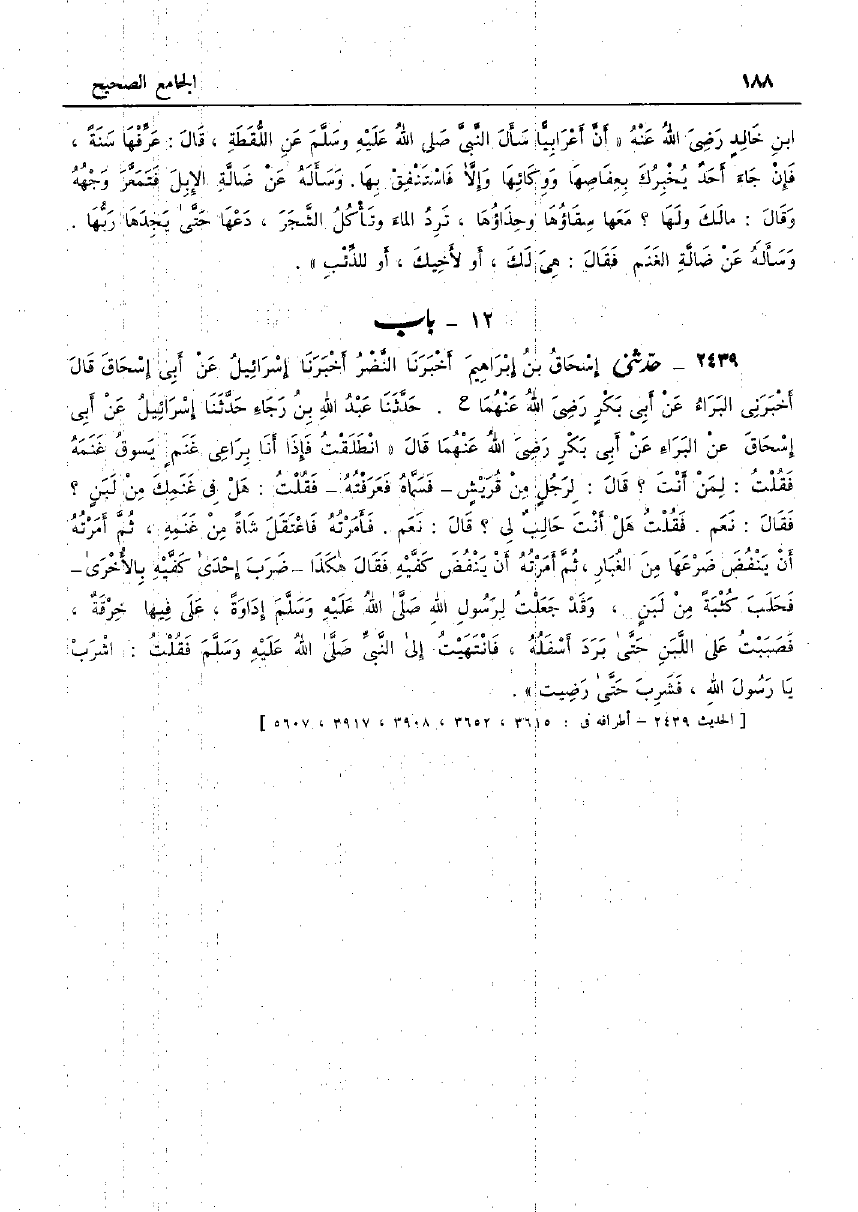 ١٨٨ الجامع الصحيح
ابنِ خَالِدٍ رَضِىَ اللهُ عَنْهُ « أَنَّ أَعْرَابِيًّا سَأَلَ النَّبِىَّ صَلى اللهُ عَلَيْهِ وسَلَّمَ عَنِ اللُّقَطَةِ ، قَالَ : عَرِّفْهَا سَنَةً ،
فَإِنْ جَاءَ أَحَدٌ يُخْبِرُكَ بِعِفَاصِهَا وَوِكَائِهَا وَإِلَّا فَاسْتَنْفِقْ بِهَا. وَسَأَلَهُ عَنْ ضَالَّةِ الإِبِلَ فَتَمَعَّرَ وَجْهُهُ
وَقَالَ : مالَكَ ولَهَا ؟ مَعَها سِقَاؤُهَا وحِذَاؤُهَا ، تَرِدُ الماءَ وتَأْكُلُ الشَّجَرَ ، دَعْهَا حَتَّىٰ يَجِدَهَا رَبُّهَا .
وَسَأَلَهُ عَنْ ضَالَّةِ الغَنَمِ فَقَالَ : هِىَ لَكَ ، أو لأَخِيكَ ، أو للذِّئْبِ » .
١٢ - باب
٢٤٣٩ - حدّثنى إِسْحَاقُ بنُ إِبْرَاهِيمَ أَخْبَرَنَا النَّضْرُ أَخْبَرَنَا إِسْرَائِيلُ عَنْ أَبِى إِسْحَاقَ قَالَ
أَخْبَرَنِى البَرَاءُ عَنْ أَبِى بَكْرٍ رَضِىَ اللهُ عَنْهُمَا ح . حَدَّثَنَا عَبْدُ اللهِ بنُ رَجَاءِ حَدَّثَنَا إِسْرَائِيلُ عَنْ أَبِى
إِسْحَاقَ عنْ البَرَاءِ عَنْ أَبِى بَكْرٍ رَضِىَ اللهُ عَنْهُمَا قَالَ « انْطَلَقْتُ فَإِذَا أَنَا بِرَاعِى غَنَمٍ يَسوقُ غَنَمَهُ
فَقُلْتُ : لِمَنْ أَنْتَ ؟ قَالَ : لِرَجُلٍ مِنْ قُرَيْشٍ - فَسَمَّاهُ فَعَرَفْتُهُ - فَقُلْتُ : هَلْ فِى غَنَمِكَ مِنْ لَبَنٍ ؟
فَقَالَ : نَعَم . فَقُلْتُ هَلْ أَنْتَ حَالِبٌ لِى ؟ قَالَ : نَعَم . فَأَمَرْتُهُ فَاعْتَقَلَ شَاةً مِنْ غَنَمِهِ ، ثُمَّ أَمَرْتُهُ
أَنْ يَنْفُضَ ضَرْعَهَا مِنَ الغُبَارِ ، ثُمَّ أَمَرْتُهُ أَنْ يَنْفُضَ كَفَّيْهِ فَقَالَ هٰكَذَا - ضَرَبَ إِحْدَىٰ كَفَّيْهِ بِالأُخْرَىٰ -
فَحَلَبَ كُثْبَةً مِنْ لَبَنٍ ، وَقَدْ جَعَلْتُ لِرَسُولِ اللهِ صَلَّىٰ اللهُ عَلَيْهِ وَسَلَّمَ إِدَاوَةً ، عَلَى فِيها خِرْقَةٌ ،
فَصَبَبْتُ عَلَى اللَّبَنِ حَتَّىٰ بَرَدَ أَسْفَلُهُ ، فَانْتَهَيْتُ إِلىٰ النَّبىِّ صَلَّىٰ اللهُ عَلَيْهِ وَسَلَّمَ فَقُلْتُ : اشْرَبْ
يَا رَسُولَ اللهِ ، فَشَرِبَ حَتَّىٰ رَضِيت » .
[ الحديث ٢٤٣٩ - أطرافه فى : ٣٦١٥ ، ٣٦٥٢ ، ٣٩٠٨ ، ٣٩١٧ ، ٥٦٠٧ ]